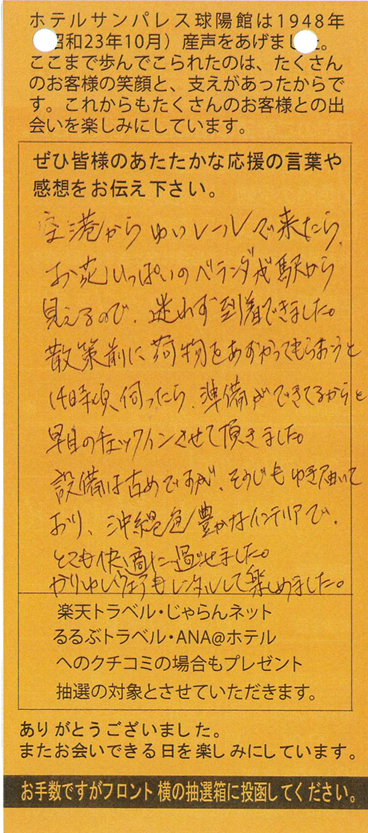 ホテルサンパレス球陽館は1948年
昭和23年10月）産声をあげました。
ここまで歩んでこられたのは、たくさん
のお客様の笑顔と、支えがあったからで
す。これからもたくさんのお客様との出
会いを楽しみにしています。
ぜひ皆様のあたたかな応援の言葉や
感想をお伝え下さい。
空港からゆいレールで来たら、
お花いっぱいのベランダが駅から
見えるので、迷わず到着できました。
散策前に荷物をあずかってもらおうと
14時頃伺ったら、準備ができてるからと
早目のチェックインさせて頂きました。
設備は古めですが、そうじもゆき届いて
おり、沖縄色豊かなインテリアで、
とても快適に過ごせました。
かりゆしウェアもレンタルして楽しめました。
楽天トラベル・じゃらんネット
るるぶトラベル・ANA@ホテル
へのクチコミの場合もプレゼント
抽選の対象とさせていただきます。
ありがとうございました。
またお会いできる日を楽しみにしています。
お手数ですがフロント横の抽選箱に投函してください。